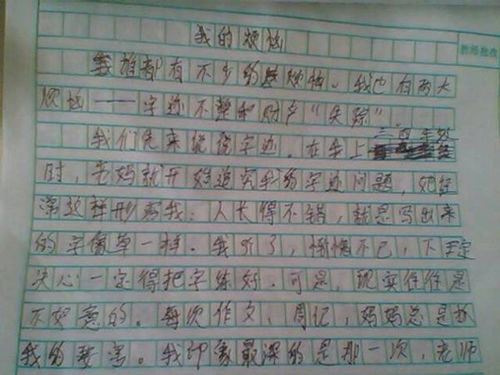 我的烦恼
谁都有不少的烦恼。我也有两大
烦恼——字迹不整和财产“失踪”
我们先来说说字迹。在我上三年级
时，老妈就开始追究我的字迹问题，她经
常这样形容我：人长得不错，就是写出来
的字像草一样。我听了，惭愧不已，下定
决心一定得把字练好。可是，现实往往是
不如意的。每次作文、周记，妈妈总是
我的要害。我印象最深的是那一次，老师
教师批改